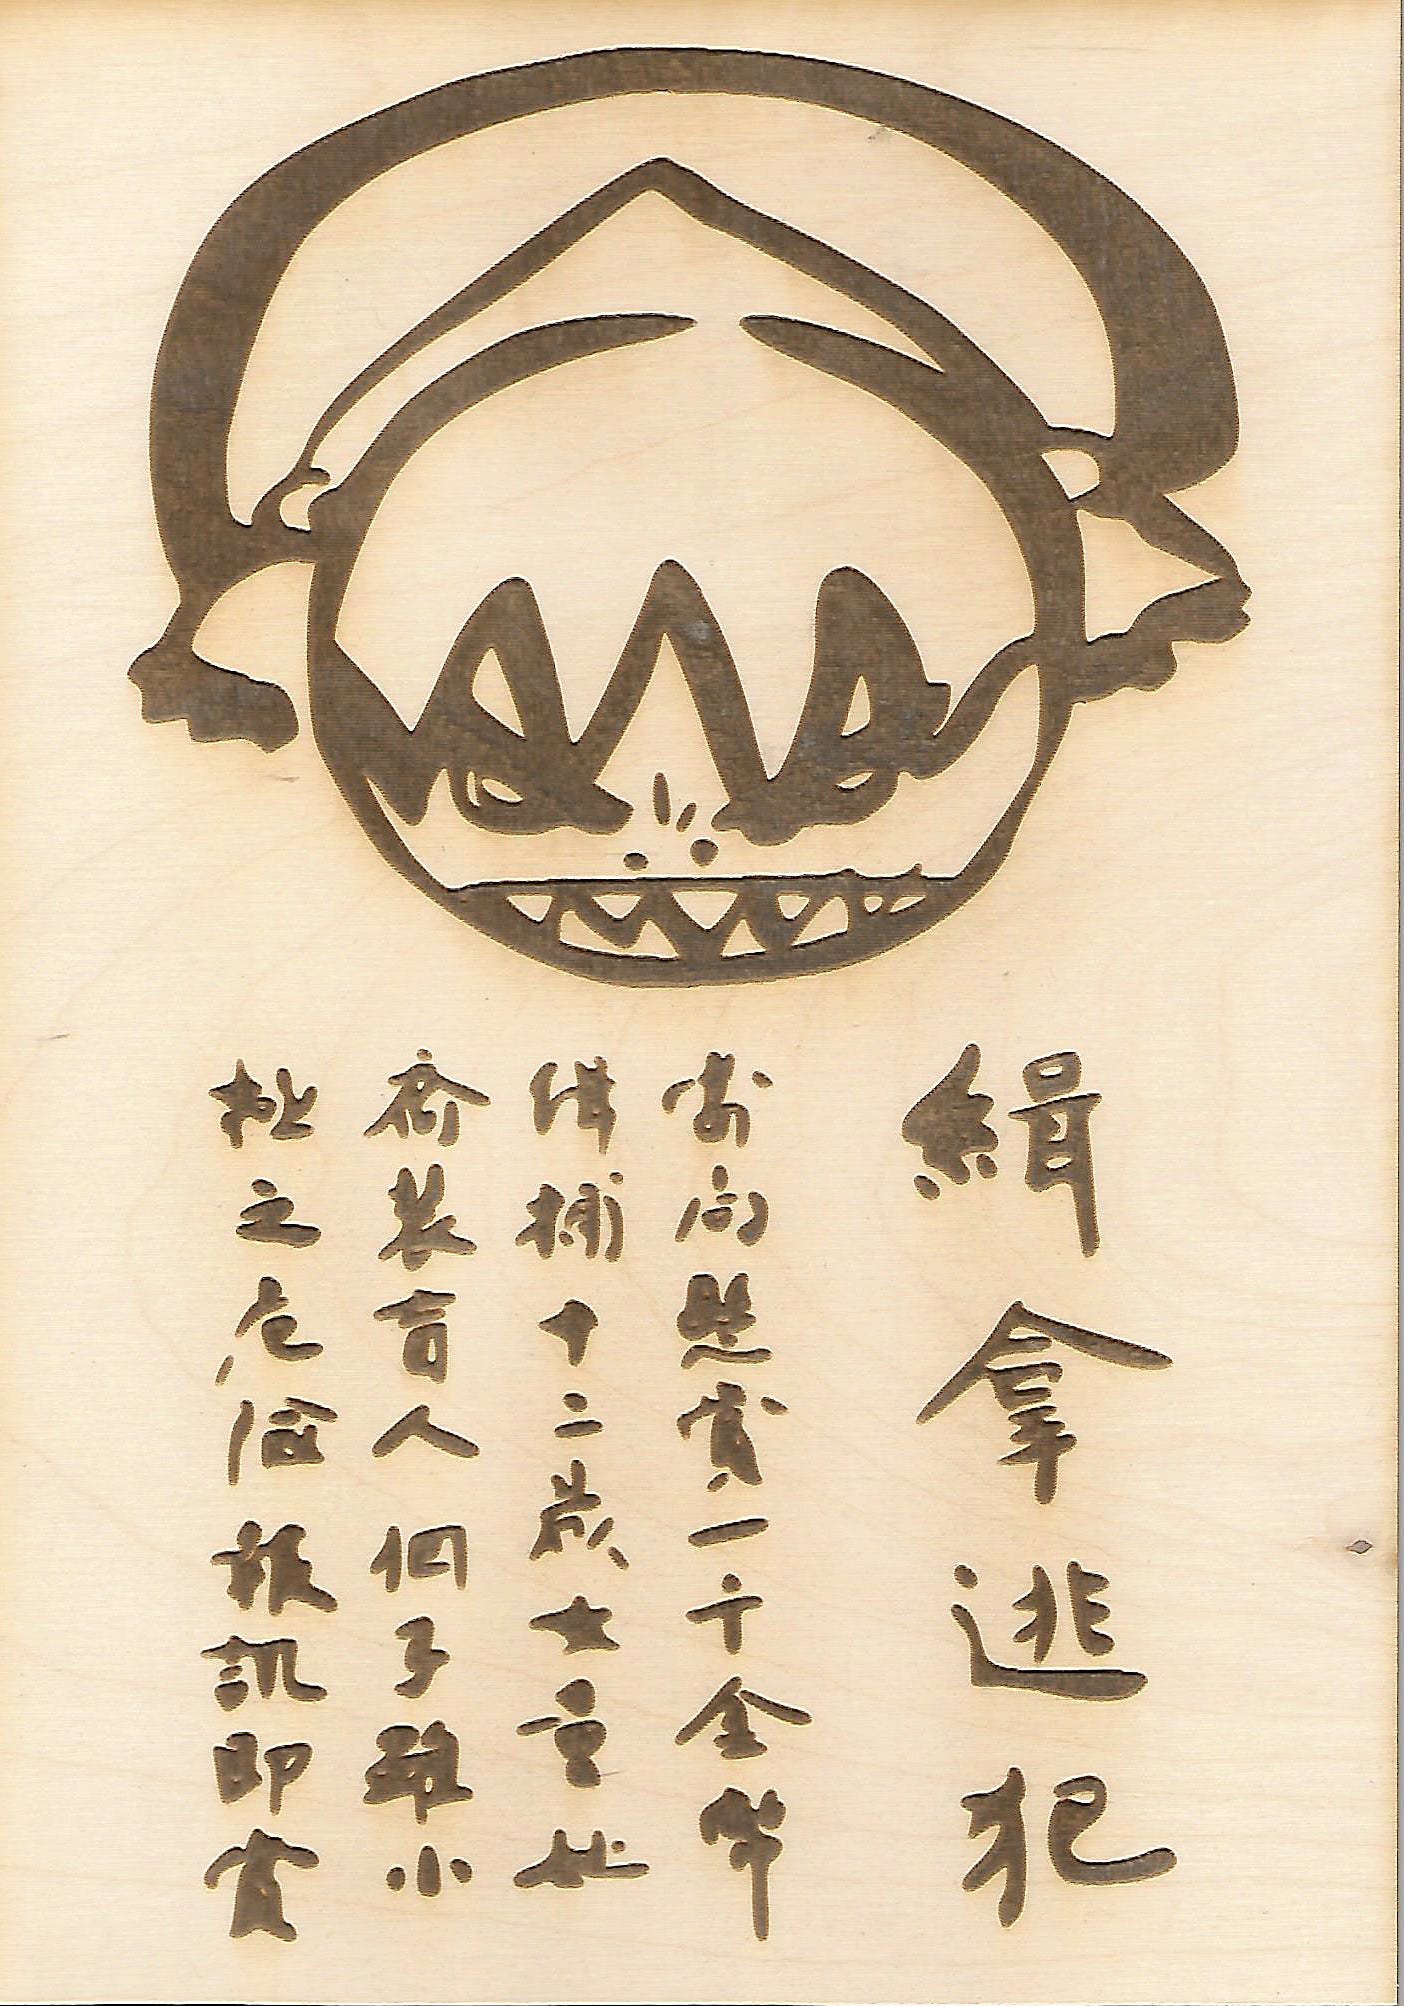 緝拿逃犯
懸賞一千金幣
捕十二歲女童此
喬裝盲人個子雖小
極之危險報訊即賞